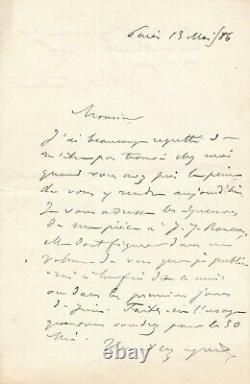 Paris 13 Mai/86
Monsieur
J'ai beaucoup regretté de
m'être pas trouvé chez moi
quand vous avez pris la peine
de vous y rendre aujourd'hui
Je vous adresse les
de ma pièce à J. J. Rousseau,
Elle doit figurer dans un
volume de vers que je publie
ou dans les premiers jours
de Juin. Faites en l'usage
que vous voudrez pour le 30
Mai.